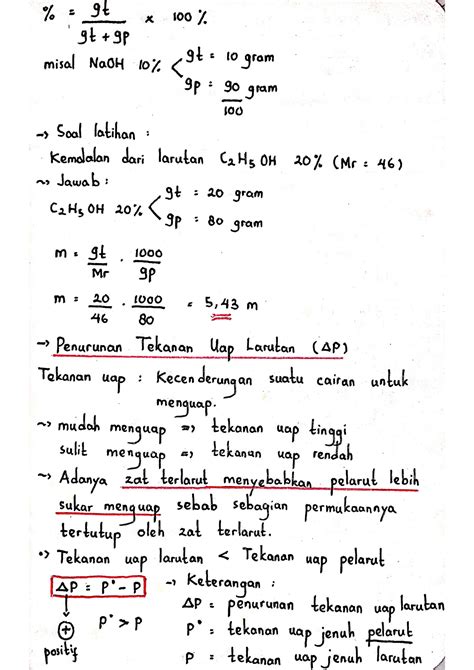 % = gt / gt + gp x 100 %
misal NaOH 10% < gt = 10 gram
gp = 90 gram
100
→ Soal latihan :
Kemolalan dari larutan C₂H₅OH 20% (Mr = 46)
~> Jawab :
C₂H₅OH 20% < gt = 20 gram
gp = 80 gram
m = gt/Mr . 1000/gp
m = 20/46 . 1000/80 = 5,43 m
→ Penurunan Tekanan Uap Larutan (ΔP)
Tekanan uap : Kecenderungan suatu cairan untuk
menguap.
~> mudah menguap => tekanan uap tinggi
sulit menguap => tekanan uap rendah
~> Adanya zat terlarut menyebabkan pelarut lebih
sukar menguap sebab sebagian permukaannya
tertutup oleh zat terlarut.
•> Tekanan uap larutan < Tekanan uap pelarut
ΔP = P° - P → Keterangan :
ΔP = penurunan tekanan uap larutan
⊕ P° > P P° = tekanan uap jenuh pelarut
positif P = tekanan uap jenuh larutan